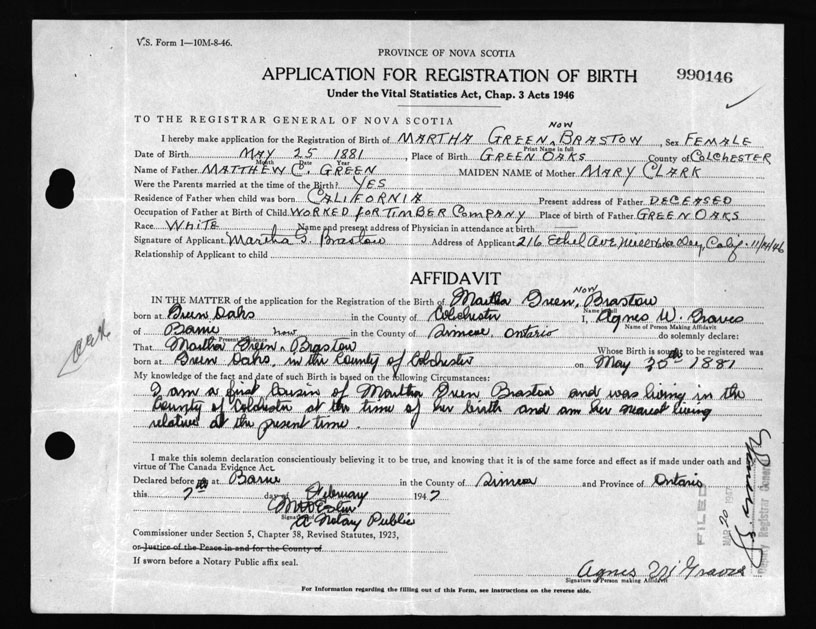 V.S. Form 1—10M-8-46.
PROVINCE OF NOVA SCOTIA
APPLICATION FOR REGISTRATION OF BIRTH
990146
Under the Vital Statistics Act, Chap. 3 Acts 1946
TO THE REGISTRAR GENERAL OF NOVA SCOTIA
I hereby make application for the Registration of Birth of MARTHA GREEN, NOW BRASTOW, Sex FEMALE
Print Name in full
Date of Birth MAY 25 1881, Place of Birth GREEN OAKS County of COLCHESTER
Month Date Year
Name of Father MATTHEW C. GREEN MAIDEN NAME of Mother MARY CLARK
Were the Parents married at the time of the Birth? YES
Residence of Father when child was born CALIFORNIA Present address of Father DECEASED
Occupation of Father at Birth of Child WORKED FOR TIMBER COMPANY Place of birth of Father GREEN OAKS
Race WHITE Name and present address of Physician in attendance at birth
Signature of Applicant Martha G. Brastow Address of Applicant 216 Ethel Ave Calif. 11/14/46
Relationship of Applicant to child
AFFIDAVIT
IN THE MATTER of the application for the Registration of Birth of Martha Green, Now Brastow
Name in full
born at Green Oaks in the County of Colchester I, Agnes W. Graves
Name of Person Making Affidavit
of Barrie now in the County of Simcoe, Ontario do solemnly declare:
Present Residence
That Martha Green Brastow Whose Birth is sought to be registered was
born at Green Oaks, in the County of Colchester on May 25th 1881
My knowledge of the fact and date of such Birth is based on the following Circumstances:
I am a first Cousin of Martha Green Brastow and was living in the
County of Colchester at the time of her birth and am her nearest living
relative at the present time.
I make this solemn declaration conscientiously believing it to be true, and knowing that it is of the same force and effect as if made under oath and
virtue of The Canada Evidence Act.
Declared before me at Barrie in the County of Simcoe and Province of Ontario
this 7th day of February 1947
A Notary Public
Commissioner under Section 5, Chapter 38, Revised Statutes, 1923,
or Justice of the Peace in and for the County of
If sworn before a Notary Public affix seal.
FILED
MAR 20 1947
Deputy Registrar General
Agnes W Graves
Signature of Person making Affidavit
For Information regarding the filling out of this Form, see instructions on the reverse side.